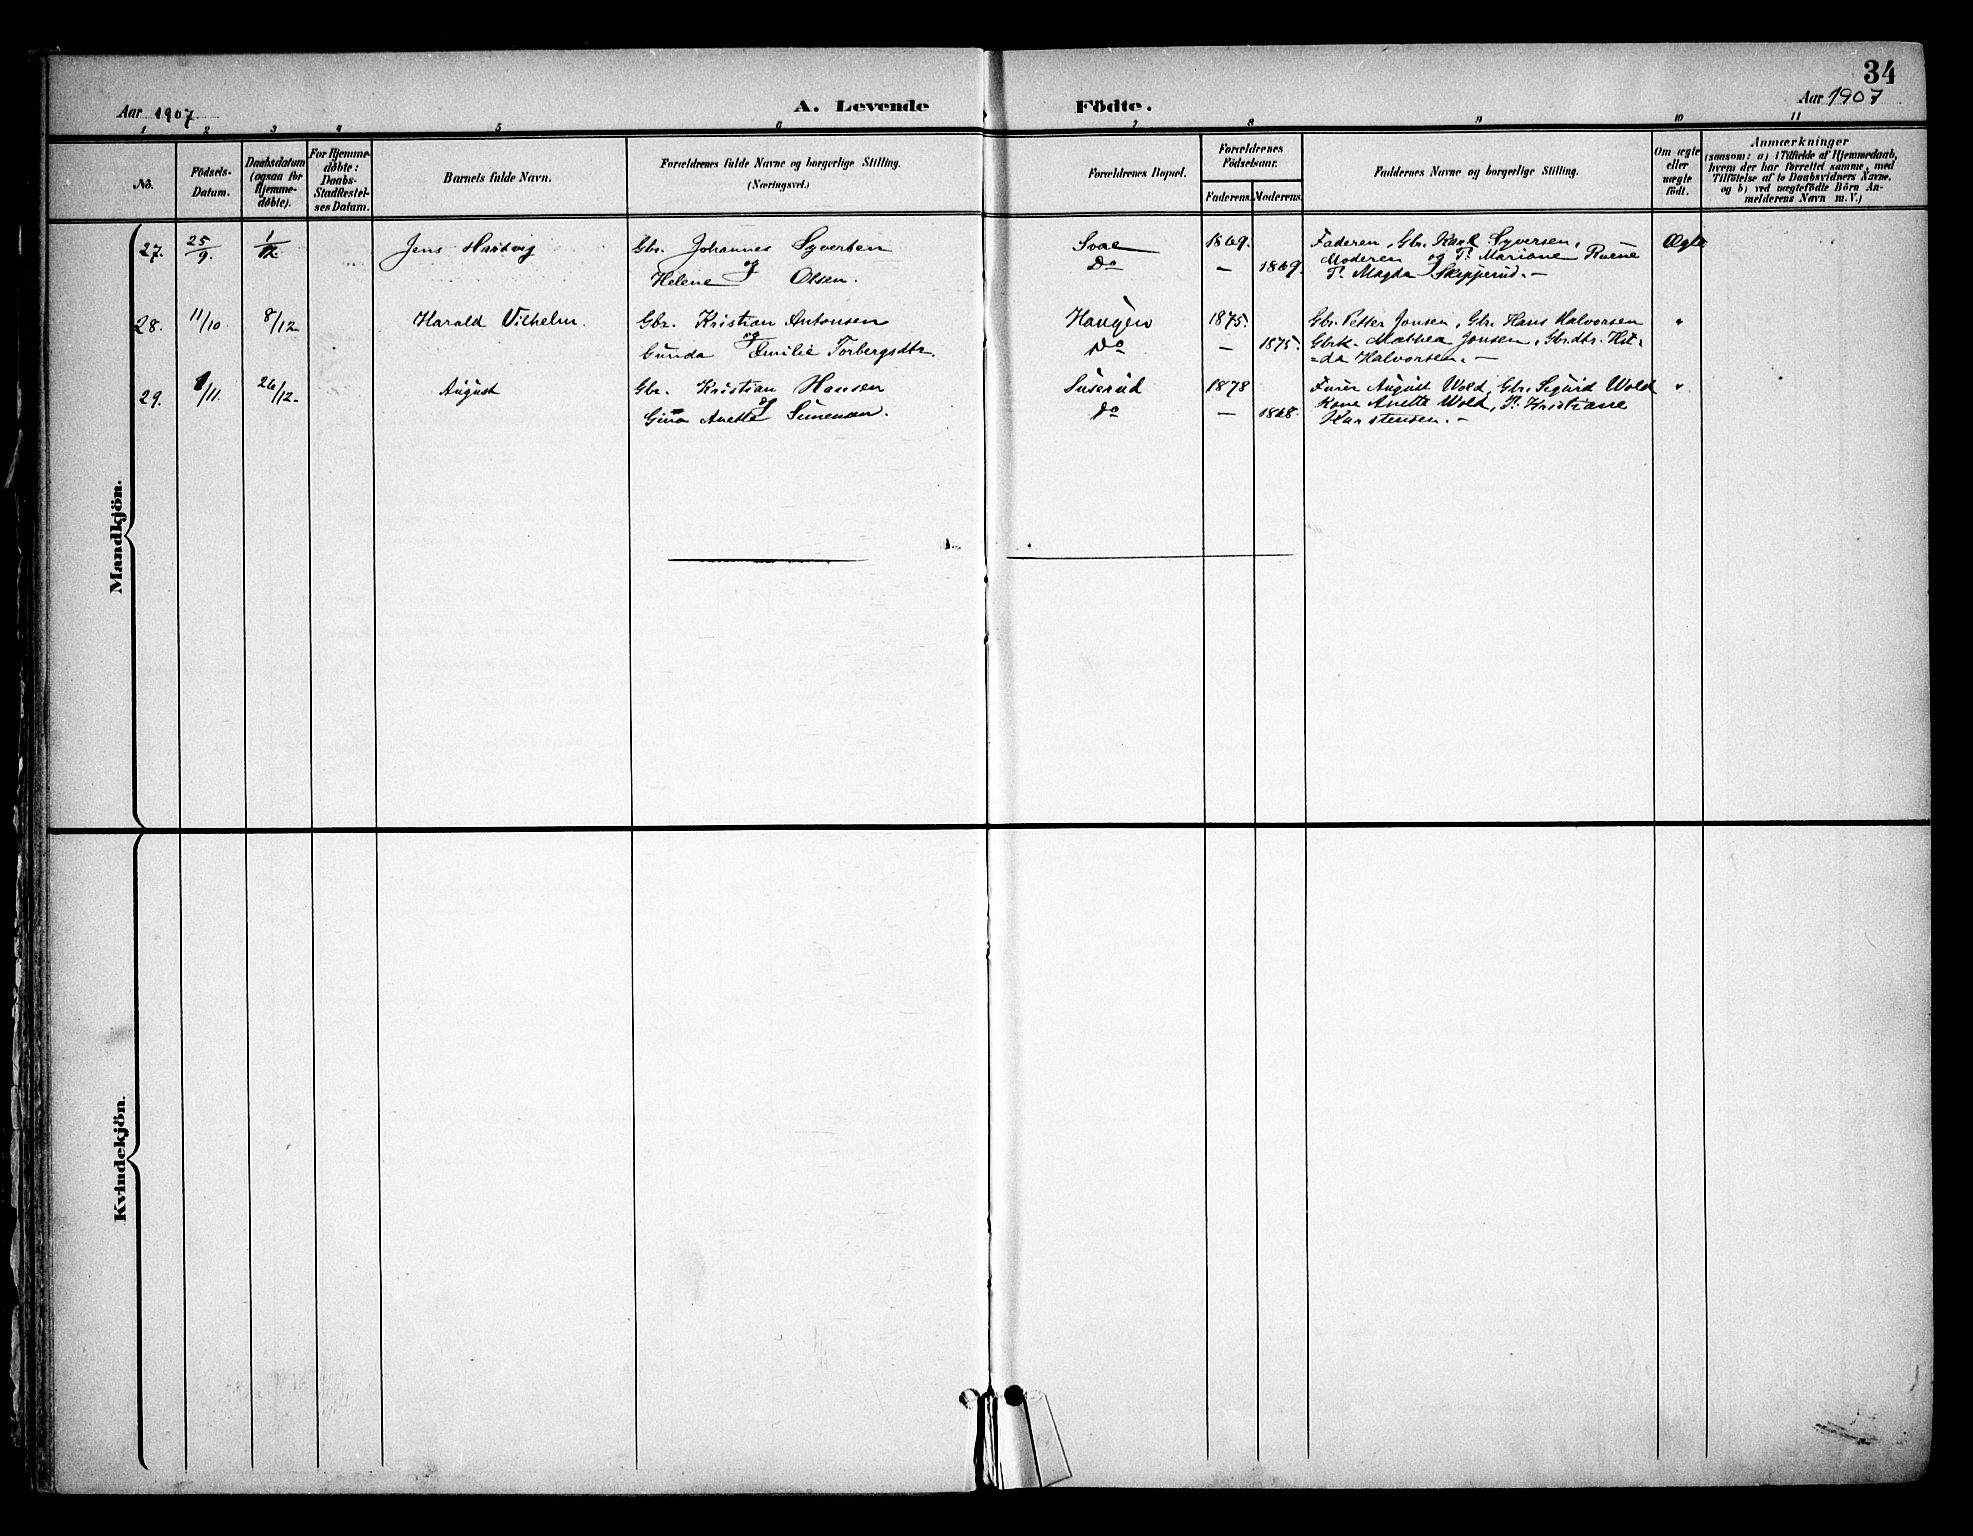 34
Aar 1907
A. Levende Födte.
Aar 1907
1 2 3 4 5 6 7 8 9 10 11
No.
Födsels-Datum.
Daabsdatum (ogsaa for Hjemme-döbte).
For Hjemme-döbte: Daabs-Stadfæstel-ses Datum.
Barnets fulde Navn.
Forældrenes fulde Navne og borgerlige Stilling.
(Næringsvei.)
Forældrenes Bopæl.
Forældrenes Födselsaar.
Faderens. Moderens.
Faddernes Navne og borgerlige Stilling.
Om ægte eller uægte födt.
Anmærkninger
(saasom: a) i Tilfælde af Hjemmedaab,
hvem der har forrettet samme, med
Tilföielse af to Daabsvidners Navne,
og b) ved uægtefödte Börn An-
melderens Navn m. V.)
Mandkjön.
27. 25/9. 1/12. Jens Hartvig Gbr. Johannes Syversen Svae 1869. Faderen, Gbr. Karl Syversen, Ægte
og Do — 1869. Moderen og P. Mariane Ruene
Helene Olsen. P. Magda Skipperud. —
28. 11/10 8/12 Harald Vilhelm. Gbr. Kristian Antonsen Haugen 1875. Gbr. Petter Jonsen, Gbr. Hans Halvorsen "
og Do — 1875. Gbrk. Mathea Jonsen, Gbrdtr. Hil-
Gunda Emilie Torbergsdtr. =da Halvorsen. —
29. 1/11. 26/12. August Gbr. Kristian Hansen Suserud 1878 Furér August Wold, Gbr. Sigurd Wold "
og Do — 1868. Kone Anette Wold, P. Kristiane
Gina Anette Simensen. Karstensen. —
Kvindekjön.